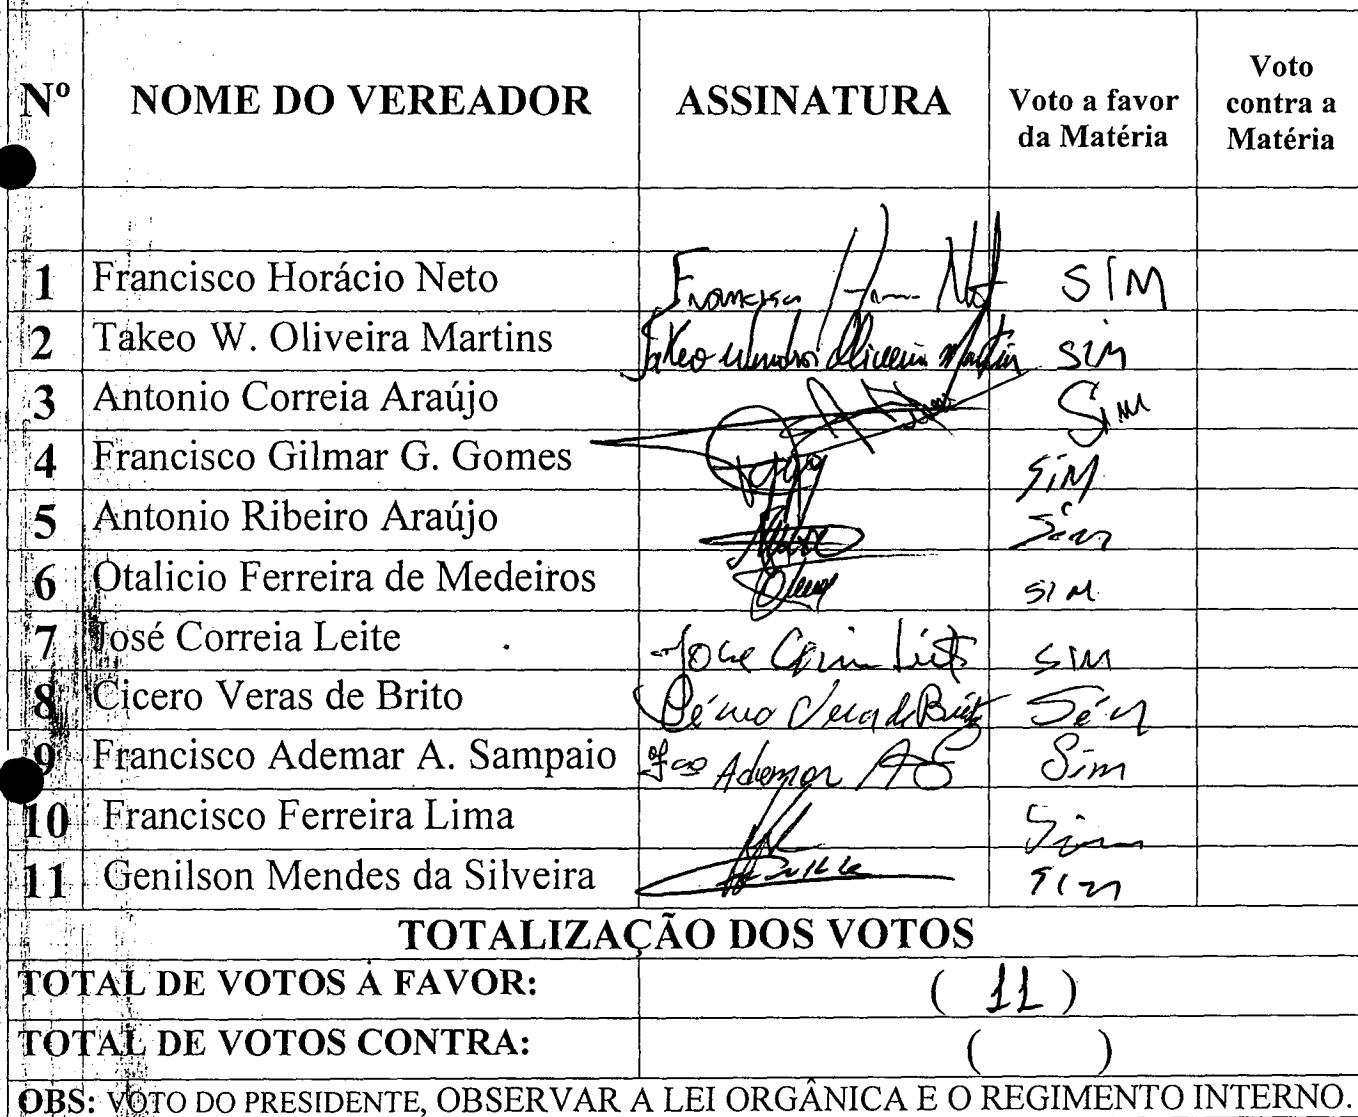 Nº NOME DO VEREADOR ASSINATURA Voto a favor da Matéria Voto contra a Matéria
1 Francisco Horácio Neto Francisco H Net SIM
2 Takeo W. Oliveira Martins Takeo Oliveira Martins SIM
3 Antonio Correia Araújo Sim
4 Francisco Gilmar G. Gomes SiM
5 Antonio Ribeiro Araújo Sim
6 Otalicio Ferreira de Medeiros SIM
7 José Correia Leite Jose SIM
8 Cicero Veras de Brito de Brito Sim
9 Francisco Ademar A. Sampaio Fco Ademar A S Sim
10 Francisco Ferreira Lima Sim
11 Genilson Mendes da Silveira Sim
TOTALIZAÇÃO DOS VOTOS
TOTAL DE VOTOS À FAVOR: ( 11 )
TOTAL DE VOTOS CONTRA: ( )
OBS: VOTO DO PRESIDENTE, OBSERVAR A LEI ORGÂNICA E O REGIMENTO INTERNO.